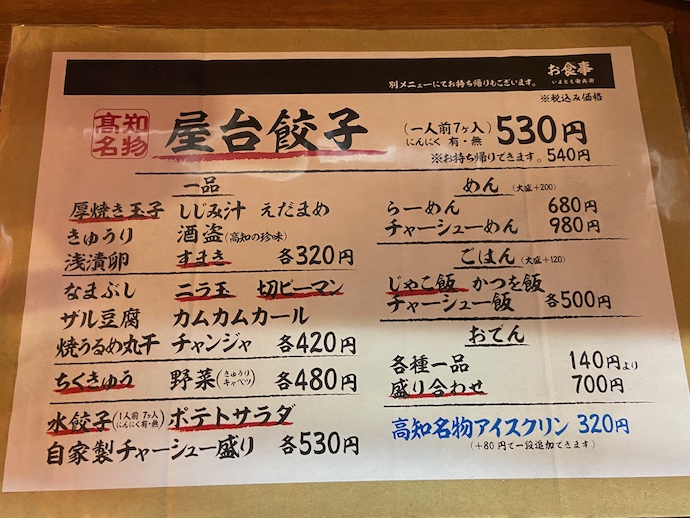 お食事
別メニューにてお持ち帰りもございます。
※税込み価格
高知名物
屋台餃子
(一人前7ヶ入)
にんにく 有・無
530円
※お持ち帰りできます。540円
一品
厚焼き玉子 しじみ汁 えだまめ
きゅうり 酒盗(高知の珍味)
浅漬卵 すまき 各320円
なまぶし ニラ玉 切ピーマン
ザル豆腐 カムカムカール
焼うるめ丸干 チャンジャ 各420円
ちくきゅう 野菜(きゅうり キャベツ) 各480円
水餃子(1人前 7ヶ入 にんにく有・無) ポテトサラダ
自家製チャーシュー盛り 各530円
めん (大盛+200)
らーめん 680円
チャーシューめん 980円
ごはん (大盛+120)
じゃこ飯 かつを飯
チャーシュー飯 各500円
おでん
各種一品 140円より
盛り合わせ 700円
高知名物アイスクリン 320円
(+80円で一段追加できます)